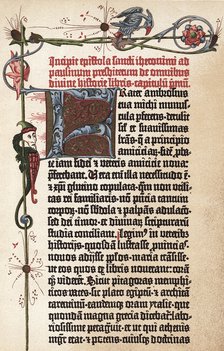 Incipit epistola sancti iheronimi ad
paulinum presbiterum de omnibus
divine historie libris· capitulū primū
Frater ambrosius
michi munus-
cula preferens· detulit
sił et suavissimas
lrās· q̄ a principio
amicicie· fidē
iam fidei et veteris amicicie nova
preferebant. Vera enī illa necessitudo ē·
et xp̄i glutino copulata· quā non utili-
tas rei familiaris· nō presentia tantum
corporū· nō sbdola et palpās adulacō·
sed dei timor· et divinarū scripturarū
studia conciliant. Legim⁹ in veterib⁹
historijs· quosdā lustrasse provincias·
novos adijsse populos· maria trāsisse·
ut eos quos ex libris noverant· coram
viderent. Sicut pitagoras memphiticos
vates· sic plato egiptū· et
tarentinū· eandemq̄ oram ytalie· que
quondā magna grecia dicebatur· laboriosissime
peragravit· et ut qui athenis
mgr̄ erat· et potens· cuiusq̄ doctrinas